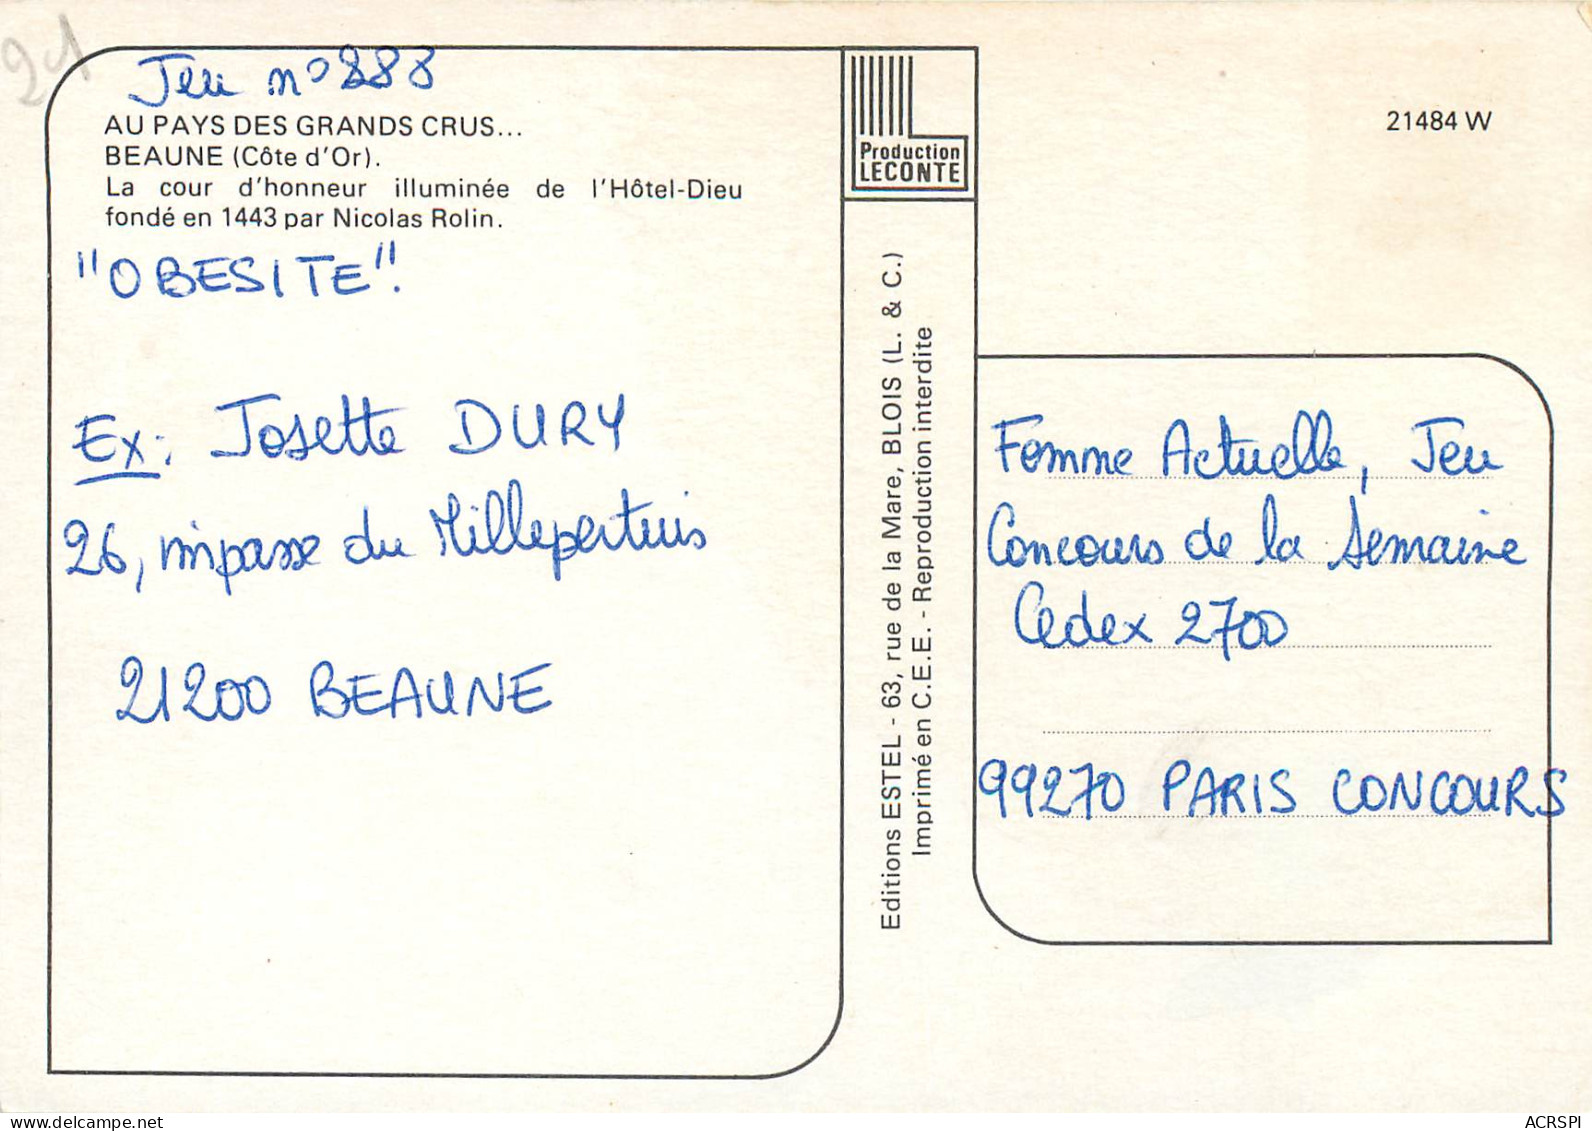 21
Jeu n° 888
AU PAYS DES GRANDS CRUS...
BEAUNE (Côte d'Or).
La cour d'honneur illuminée de l'Hôtel-Dieu
fondé en 1443 par Nicolas Rolin.
"OBESITE".
Ex: Josette DURY
26, impasse du Millepertuis
21200 BEAUNE
Production
LECONTE
Editions ESTEL - 63, rue de la Mare, BLOIS (L. & C.)
Imprimé en C.E.E. - Reproduction interdite
21484 W
Femme Actuelle, Jeu
Concours de la Semaine
Cedex 2700
99270 PARIS CONCOURS
www.delcampe.net
ACRSPI